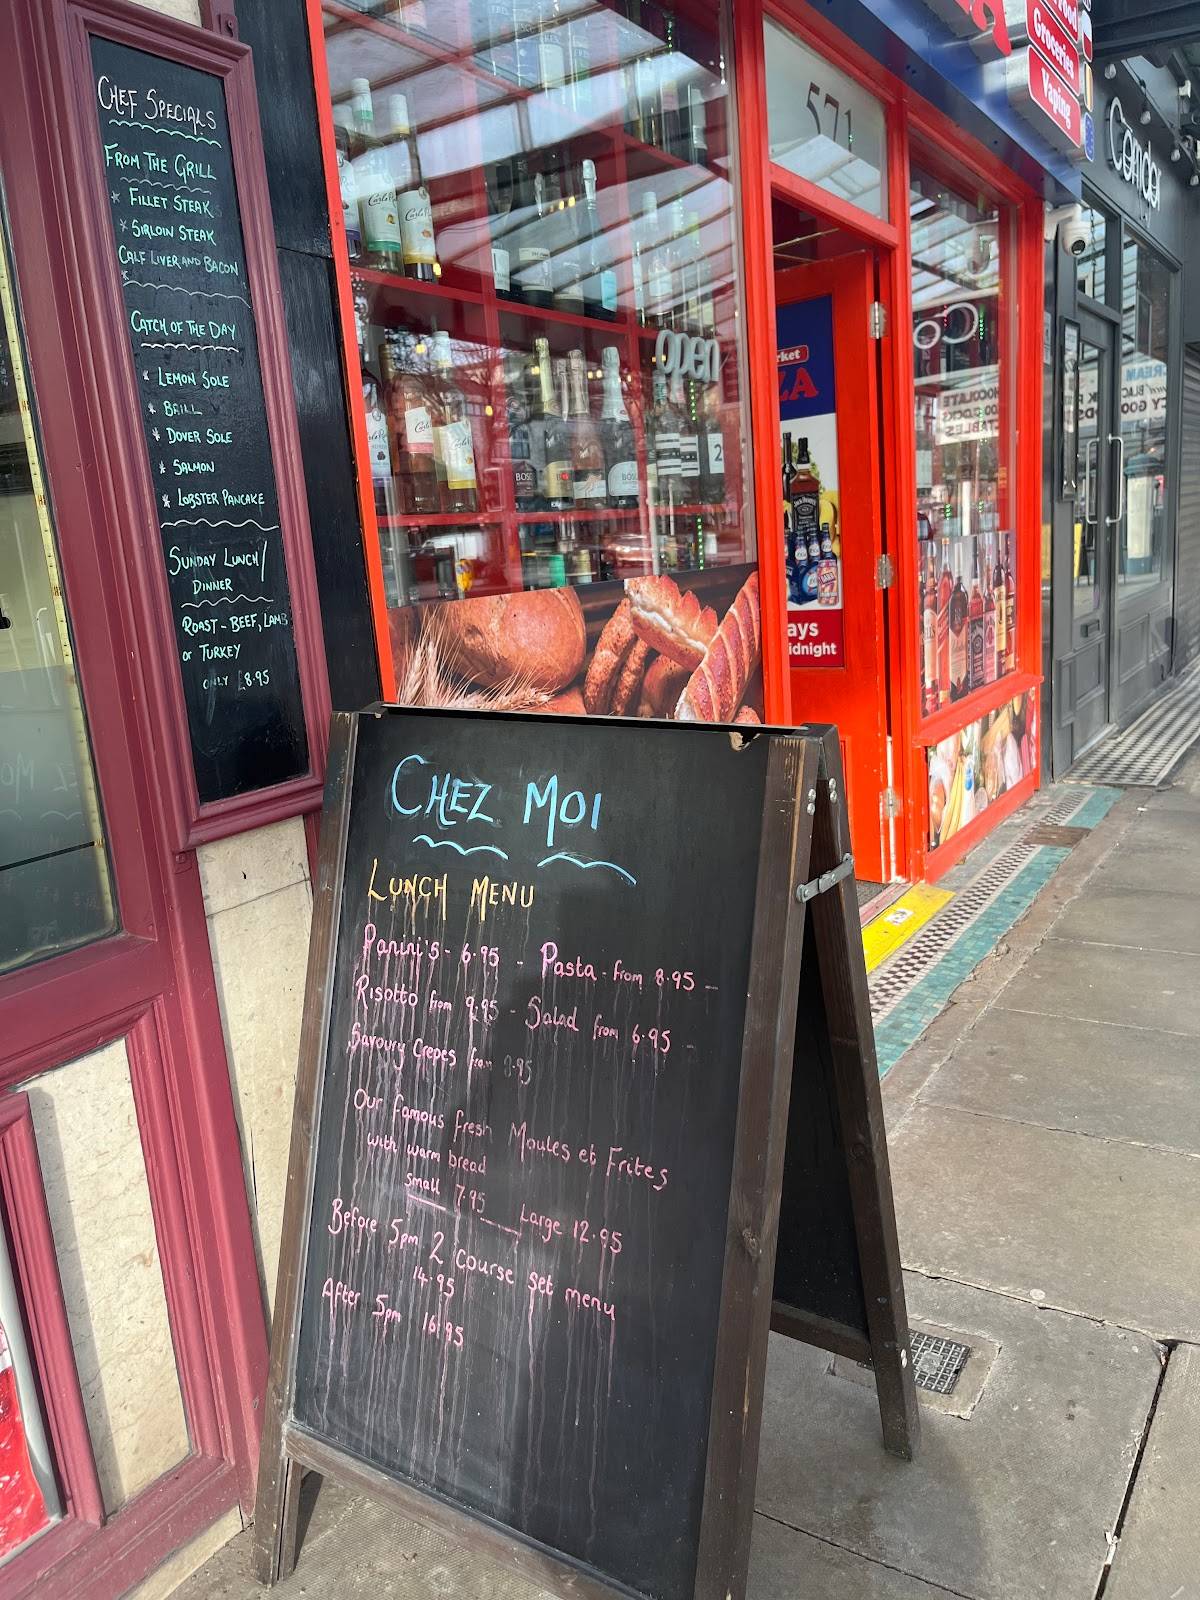 CHEF SPECIALS
FROM THE GRILL
* FILLET STEAK
* SIRLOIN STEAK
CALF LIVER AND BACON
*
CATCH OF THE DAY
* LEMON SOLE
* BRILL
* DOVER SOLE
* SALMON
* LOBSTER PANCAKE
SUNDAY LUNCH/
DINNER
ROAST - BEEF, LAMB
or TURKEY
ONLY £8.95
CHEZ MOI
LUNCH MENU
Panini's - 6.95 - Pasta - from 8.95 -
Risotto from 9.95 - Salad from 6.95 -
Savoury Crepes from
Our famous fresh Moules et Frites
with warm bread
small 7.95 Large 12.95
Before 5pm 2 course set menu
14.95
After 5pm 16.95
571
open
Groceries
Vaping
Corridor
rket
ZA
ays
idnight